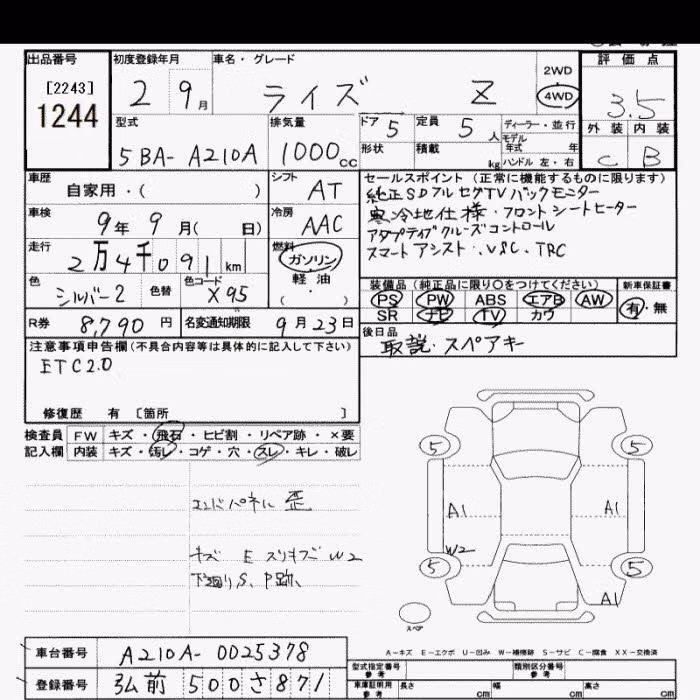 出品番号 初度登録年月 車名・グレード 評価点
[2243]
1244
2 9月 ライズ Z 2WD 4WD 3.5
型式 排気量 ドア 5 定員 5人 ディーラー・並行 外装 内装
5BA-A210A 1000cc 形状 積載 kg モデル年式 年 ハンドル 左・右 C B
車歴 自家用・( ) シフト AT
セールスポイント (正常に機能するものに限ります)
純正SDフルセグTV バックモニター
寒冷地仕様・フロントシートヒーター
アダプティブクルーズコントロール
スマートアシスト・VSC・TRC
車検 9年 9月( 日) 冷房 AAC
走行 2万4千091km 燃料 ガソリン・軽油 ( ・ )
色 シルバー2 色替 色コード X95
装備品 (純正品に限り○をつけてください) 新車保証書
PS PW ABS エアB AW 有・無
SR ナビ TV カワ
R券 8,790円 名変通知期限 9月23日
後日品 取説・スペアキー
注意事項申告欄(不具合内容等は具体的に記入して下さい)
ETC2.0
修復歴 有 〔箇所 〕
検査員 FW キズ・飛石・ヒビ割・リペア跡・×要
記入欄 内装 キズ・汚レ・コゲ・穴・スレ・キレ・破レ
エンドパネル 歪
キズ E スリキズ W2
下廻りS、P跡、
5 5
A1 A1
W2
5 5
A1
スペア
A-キズ E-エクボ U-凹み W-補修跡 S-サビ C-腐食 XX-交換済
車台番号 A210A-0025378
登録番号 弘前 500 さ 871
型式指定番号 参考 類別区分番号 参考
車庫証明用 参考 長さ cm 幅 cm 高さ cm